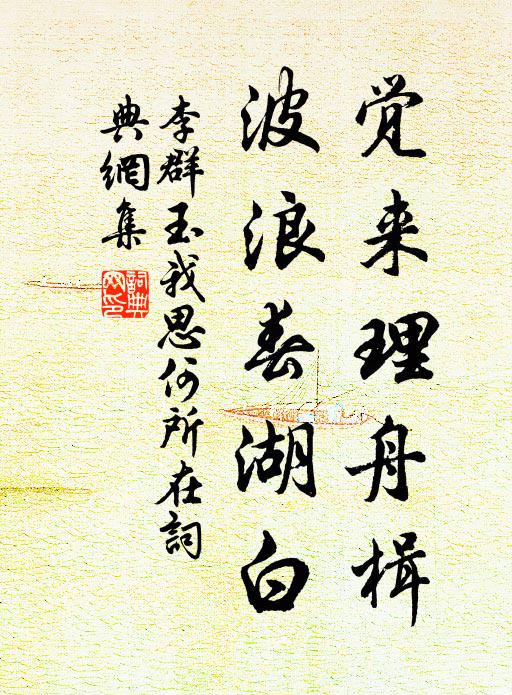 觉来理舟楫
波浪春湖白
李群玉我思何所在词
典網集
詞典網印